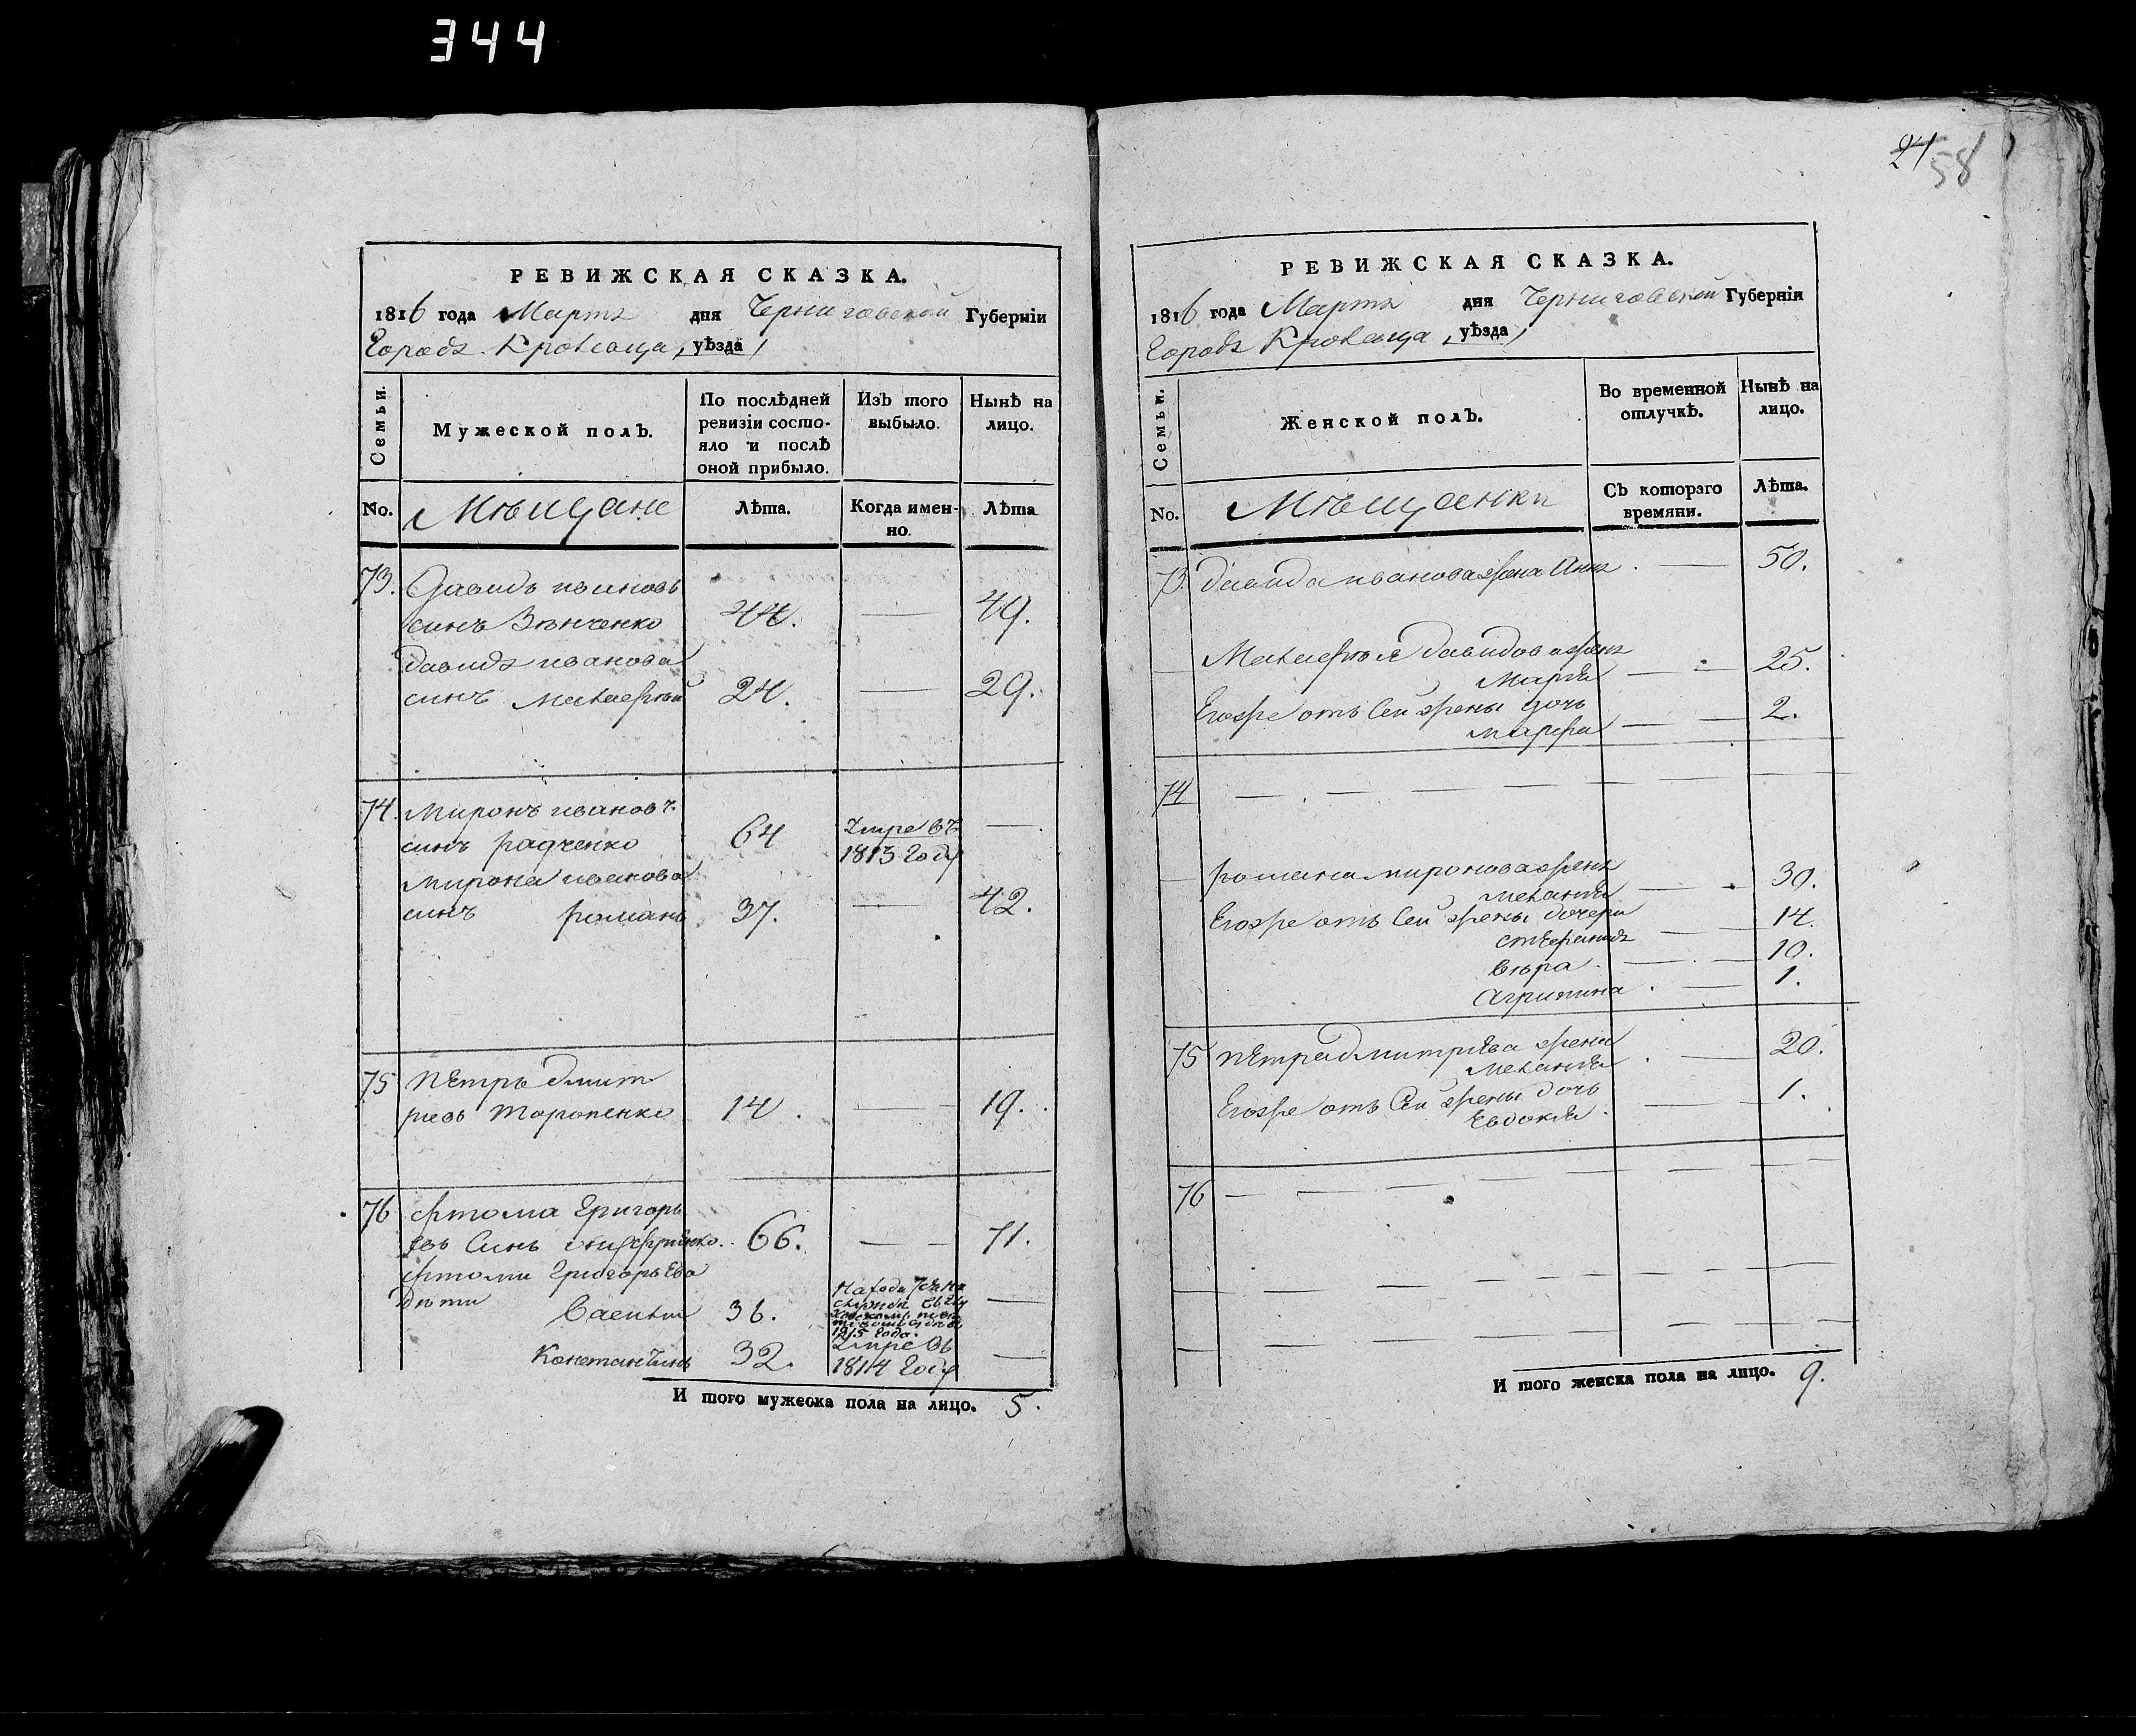 344
24 58
РЕВИЖСКАЯ СКАЗКА.
1816 года Марта дня Черниговской Губерніи
Городъ Кролевца, уѣзда,
Семьи.
Мужеской полъ.
По послѣдней
ревизіи состо-
яло и послѣ
оной прибыло.
Изъ того
выбыло.
Нынѣ на
лицо.
No.
Мѣщане
Лѣта.
Когда имен-
но.
Лѣта
73. Давидъ ивановъ
синъ Зѣнченко 44. — 49.
Давида иванова
синъ 24. — 29.
74. Миронъ ивановъ
синъ радченко 64 Умре въ —
1815 Году
Мирона иванова
синъ романъ 37. — 42.
75 Петръ дмит
риевъ Тороненко 14. — 19.
76 Фтома Григорь
евъ Синъ 66. — 71.
Фтоми Григорьева
дѣти
36. —
1815 года.
Константинъ 32. Умре въ —
1814 Году
И того мужеска пола на лицо. 5.
РЕВИЖСКАЯ СКАЗКА.
1816 года Марта дня Черниговской Губерніи
Городъ Кролевца, уѣзда,
Семьи.
Женской полъ.
Во временной
отлучкѣ.
Нынѣ на
лицо.
No.
Мѣщанки
Съ котораго
времяни.
Лѣта.
73. Давида иванова жена Анна — 50.
Давидова жена
Марія — 25.
Егоже отъ Сей жены дочь
марфа — 2.
74
романа миронова жена
меланія — 30.
Егоже отъ Сей жены дочери
стефанида — 14.
Вѣра — 10.
Агрипина — 1.
75 Петра дмитріева жена
меланія — 20.
Егоже отъ Сей жены дочь
Евдокія — 1.
76
И того женска пола на лицо. 9.